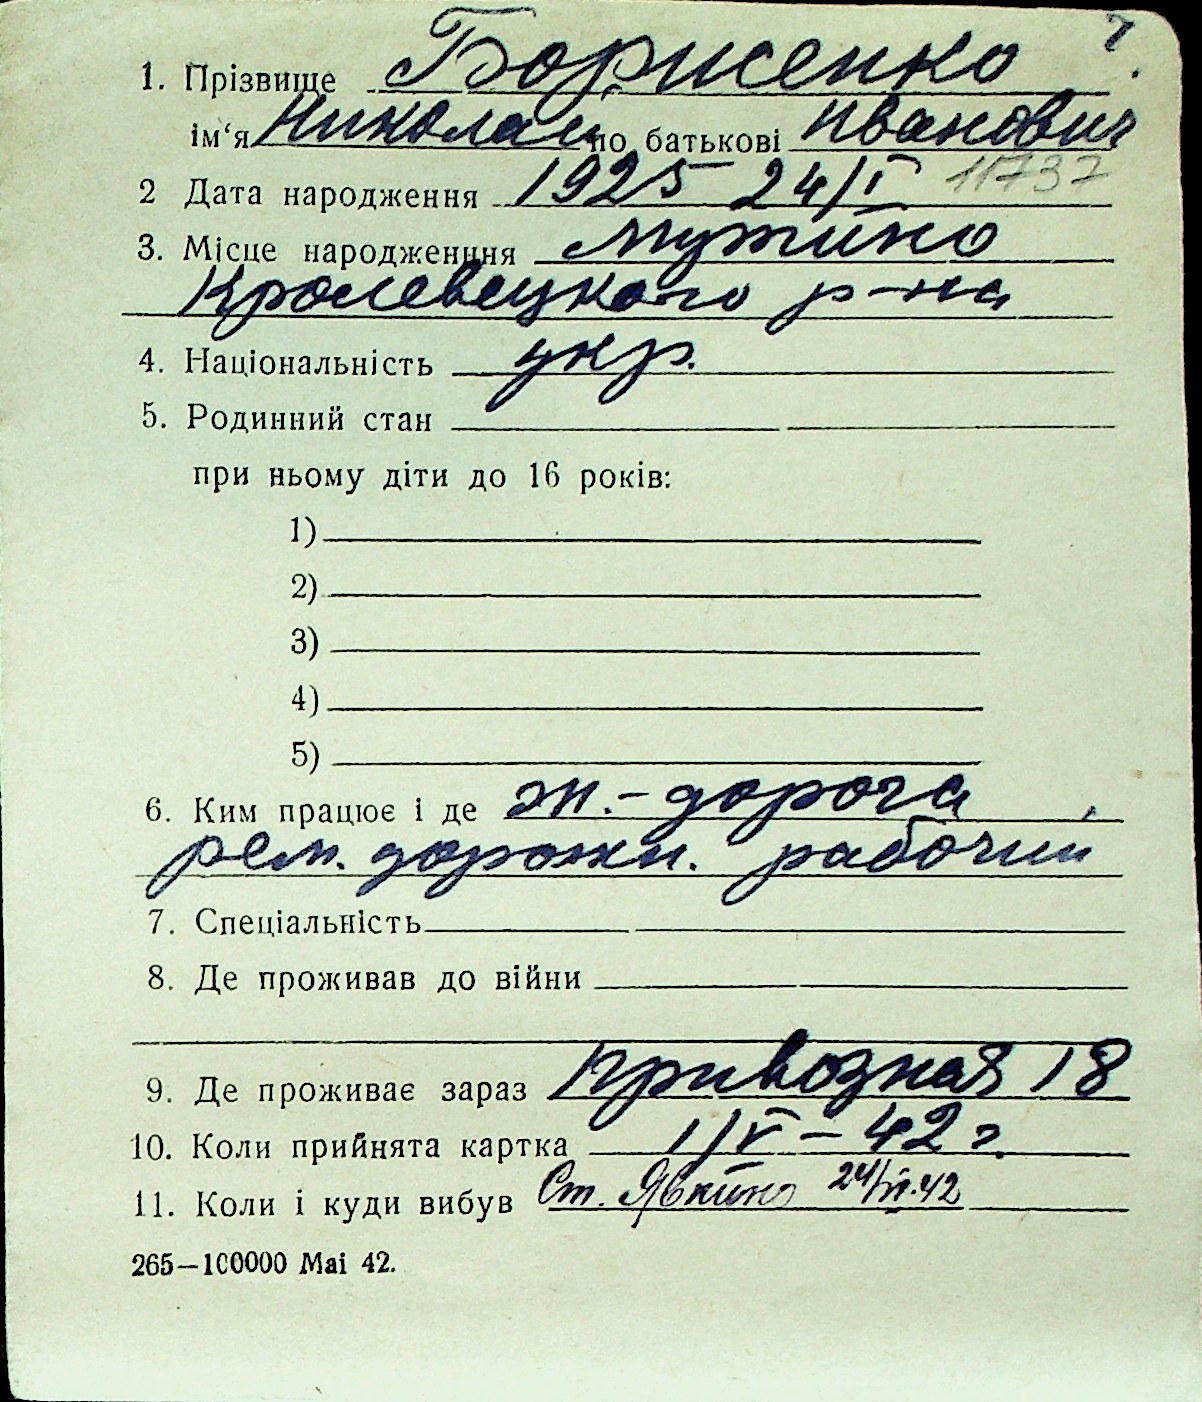 7
1. Прізвище Борисенко
ім‘я Николай по батькові Иванович
2 Дата народження 1925 24/I 11737
3. Місце народженння Мутино
Кролевецкого р-на
4. Національність укр.
5. Родинний стан
при ньому діти до 16 років:
1)
2)
3)
4)
5)
6. Ким працює і де ж.-дорога,
рем. дорожн. рабочий
7. Спеціальність
8. Де проживав до війни
9. Де проживає зараз Привозная 18
10. Коли прийнята картка 1/V – 42 г.
11. Коли і куди вибув Ст. Явкино 24/VI.42
265—100000 Mai 42.